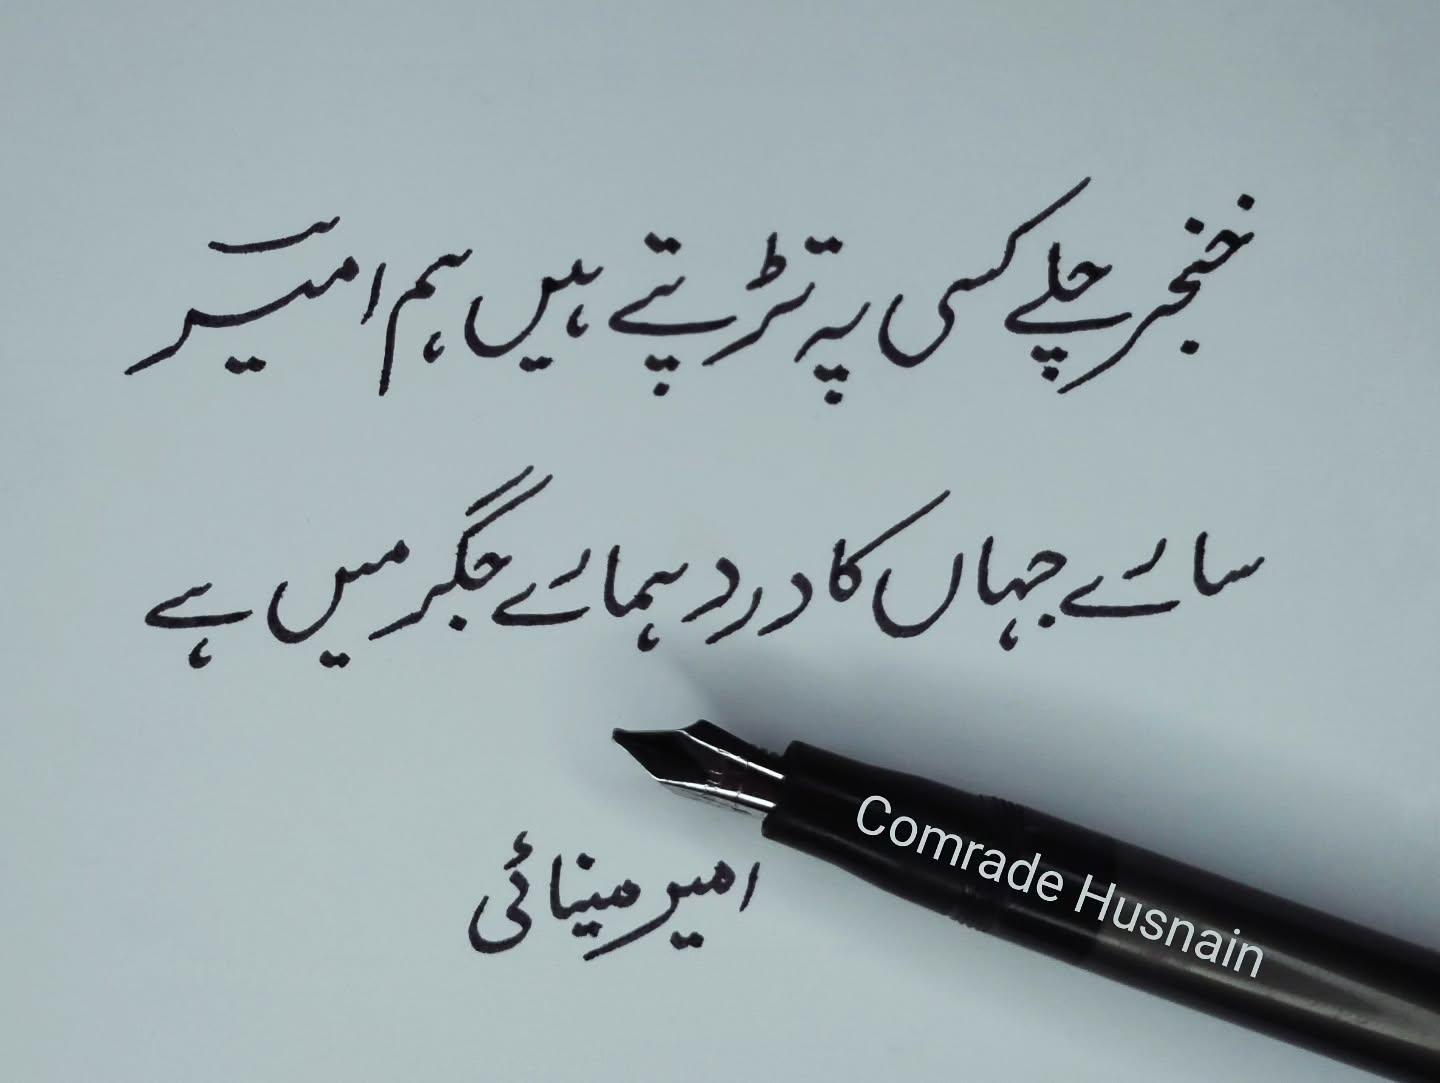 خنجر چلے کسی پہ تڑپتے ہیں ہم امیرؔ
سارے جہاں کا درد ہمارے جگر میں ہے
امیر مینائی
Comrade Husnain